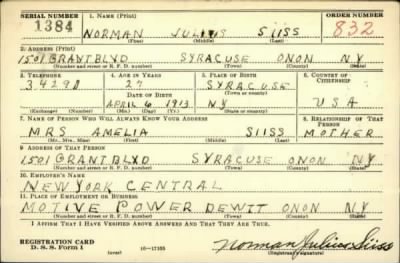 SERIAL NUMBER 1. NAME (Print) ORDER NUMBER
1384 NORMAN JULIUS SIISS 832
(First) (Middle) (Last)
2. ADDRESS (Print)
1501 GRANT BLVD SYRACUSE ONON NY
(Number and street or R. F. D. number) (Town) (County) (State)
3. TELEPHONE 4. AGE IN YEARS 5. PLACE OF BIRTH 6. COUNTRY OF CITIZENSHIP
27 SYRACUSE
DATE OF BIRTH (Town or county)
APRIL 6 1913 NY USA
(Exchange) (Number) (Mo.) (Day) (Yr.) (State or country)
7. NAME OF PERSON WHO WILL ALWAYS KNOW YOUR ADDRESS 8. RELATIONSHIP OF THAT PERSON
MRS AMELIA SIISS MOTHER
(Mr., Mrs., Miss) (First) (Middle) (Last)
9. ADDRESS OF THAT PERSON
1501 GRANT BLVD SYRACUSE ONON NY
(Number and street or R. F. D. number) (Town) (County) (State)
10. EMPLOYER'S NAME
NEW YORK CENTRAL
11. PLACE OF EMPLOYMENT OR BUSINESS
MOTIVE POWER DEWIT ONON NY
(Number and street or R. F. D. number) (Town) (County) (State)
I AFFIRM THAT I HAVE VERIFIED ABOVE ANSWERS AND THAT THEY ARE TRUE.
REGISTRATION CARD
D. S. S. Form 1 (over) 16—17105 Norman Julius Siiss
(Registrant's signature)